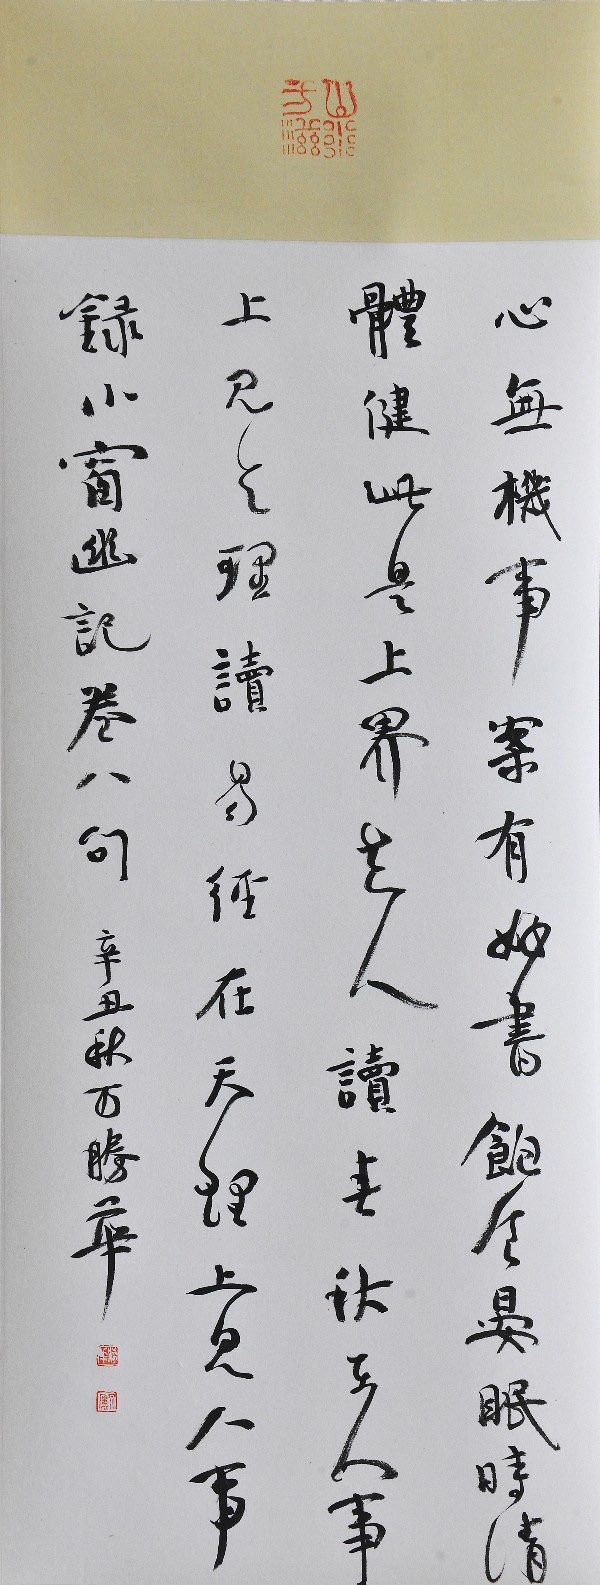 心無機事案有好書飽食晏眠時清
體健此是上界真人讀春秋在人事
上見天理讀易經在天理上見人事
録小窗幽記卷八句 辛丑秋万勝華